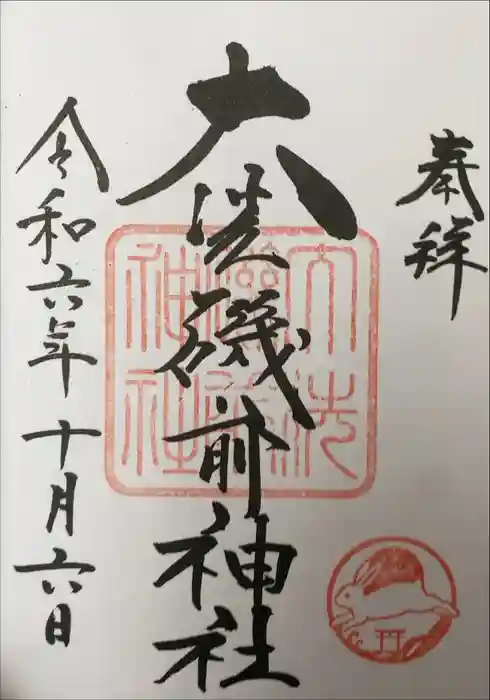 奉拝
大洗磯前神社
令和六年十月六日
大洗
磯前
神社